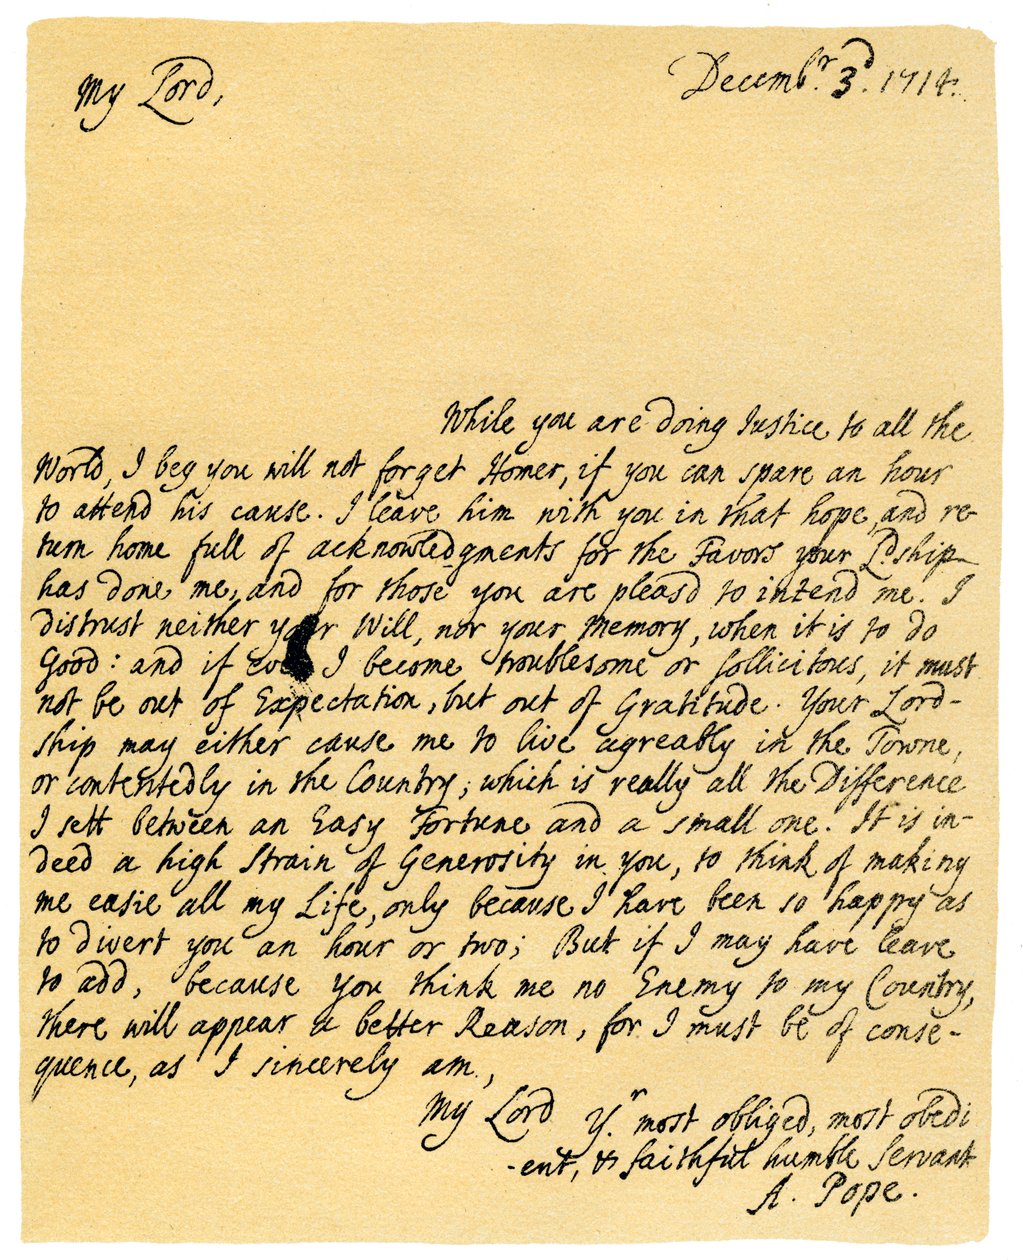 My Lord,
Decemb.r 3d. 1714.
While you are doing Justice to all the
World, I beg you will not forget Homer, if you can spare an hour
to attend his cause. I leave him with you in that hope, and re-
turn home full of acknowledgments for the Favors your Ldship
has done me, and for those you are pleasd to intend me. I
distrust neither your Will, nor your Memory, when it is to do
Good: and if ever I become troublesome or sollicitous, it must
not be out of Expectation, but out of Gratitude. Your Lord-
ship may either cause me to live agreably in the Towne,
or contentedly in the Country; which is really all the Difference
I sett between an Easy Fortune and a small one. It is in-
deed a high Strain of Generosity in you, to think of making
me easie all my Life, only because I have been so happy as
to divert you an hour or two; But if I may have leave
to add, because you think me no Enemy to my Country,
there will appear a better Reason, for I must be of conse-
quence, as I sincerely am,
My Lord Y.r most obliged, most obedi
-ent, & faithful humble Servant
A. Pope.